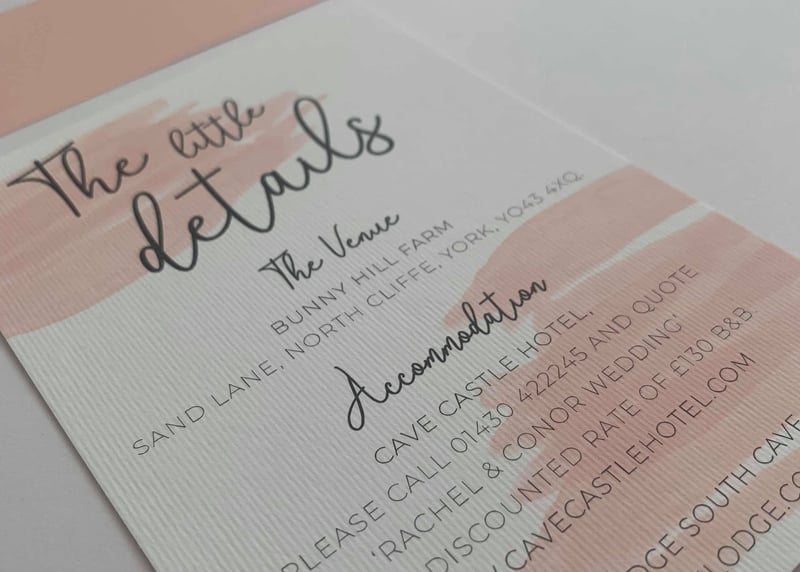 The little
details
The Venue
BUNNY HILL FARM
SAND LANE, NORTH CLIFFE, YORK, YO43 4XQ.
Accommodation
CAVE CASTLE HOTEL,
PLEASE CALL 01430 422245 AND QUOTE
'RACHEL & CONOR WEDDING'
DISCOUNTED RATE OF £130 B&B.
CAVECASTLEHOTEL.COM
SOUTH CAVE